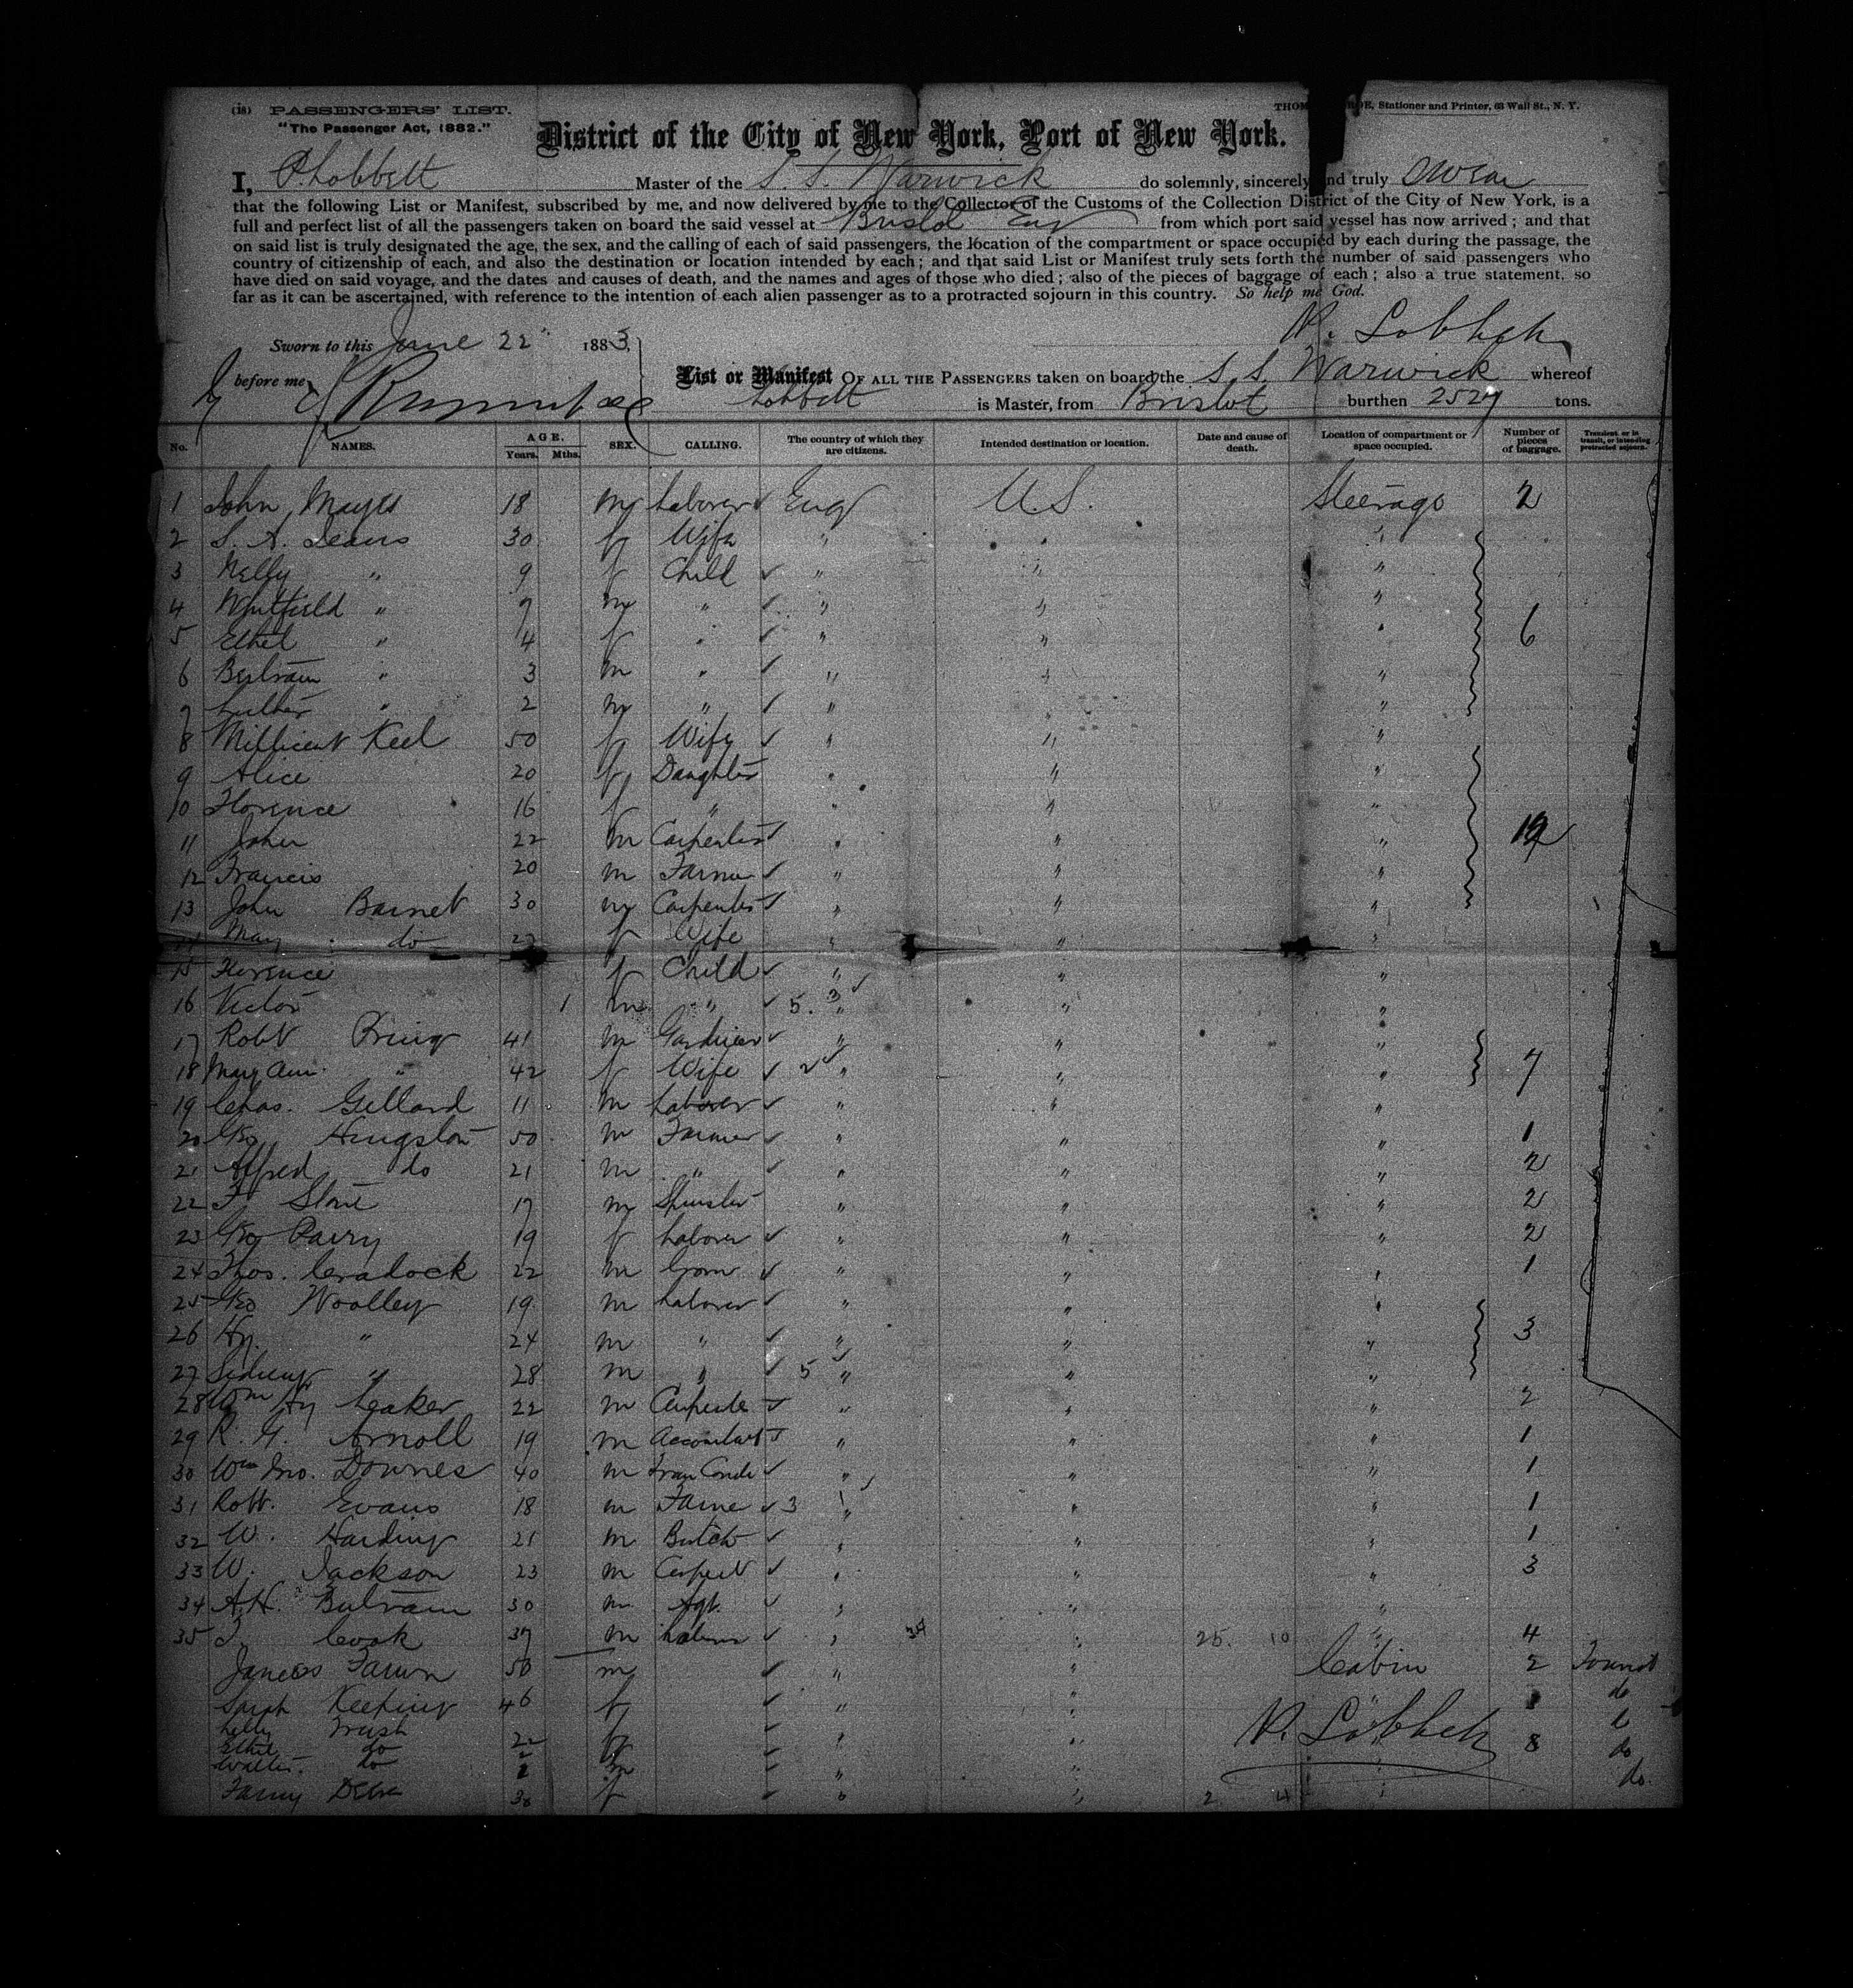 (18) PASSENGERS' LIST.
"The Passenger Act, 1882."
Stationer and Printer, 63 Wall St., N. Y.
District of the City of New York, Port of New York.
I, P. Lobbett Master of the S. S. Warwick do solemnly, sincerely and truly swear
that the following List or Manifest, subscribed by me, and now delivered by me to the Collector of the Customs of the Collection District of the City of New York, is a
full and perfect list of all the passengers taken on board the said vessel at Bristol Eng from which port said vessel has now arrived; and that
on said list is truly designated the age, the sex, and the calling of each of said passengers, the location of the compartment or space occupied by each during the passage, the
country of citizenship of each, and also the destination or location intended by each; and that said List or Manifest truly sets forth the number of said passengers who
have died on said voyage, and the dates and causes of death, and the names and ages of those who died; also of the pieces of baggage of each; also a true statement, so
far as it can be ascertained, with reference to the intention of each alien passenger as to a protracted sojourn in this country. So help me God.
Sworn to this June 22 1883,
before me
List or Manifest OF ALL THE PASSENGERS taken on board the S. S. Warwick whereof
Lobbett is Master, from Bristol burthen 2527 tons.
No. NAMES. AGE. Years. Mths. SEX. CALLING. The country of which they are citizens. Intended destination or location. Date and cause of death. Location of compartment or space occupied. Number of pieces of baggage. Transient or in transit, or intending protracted sojourn.
1 John Mayes 18 m Laborer Eng U.S. Steerage 2
2 S. A. 30 f Wife "
3 Nelly " 9 f Child " " "
4 Whitfield " 7 m " " " "
5 Ethel " 4 f " " " " 6
6 Bertram " 3 m " " " "
7 Luther " 2 m " " " "
8 Millicent Keel 50 f Wife " " "
9 Alice 20 f Daughter " " "
10 Florence 16 f " " " "
11 John 22 m Carpenter " " "
12 Francis 20 m Farmer " " "
13 John Barnet 30 m Carpenter " " "
14 May do f Wife " " "
15 Florence f Child " " "
16 Victor 1 m " 5. 3 " " "
17 Robt Pring 41 m Gardiner " " "
18 Mary Ann " 42 f Wife 2 " " " 7
19 Chas. Gillard 11 m Laborer " " "
20 Geo Hingston 50 m Farmer " " " 1
21 Alfred do 21 m " " " " 2
22 F Stone 17 m Spinster " " " 2
23 Geo Parry 19 f Laborer " " " 2
24 Thos. Cradock 22 m " " " 1
25 Geo Woolley 19 m Laborer " " "
26 Hy. " 24 m " " " " 3
27 Sidney " 28 m " 5 " " "
28 Wm Hy Leaker 22 m Carpenter " " " 2
29 R. G. Arnoll 19 m Accountant " " " 1
30 Wm Jno. Downes 40 m " " " 1
31 Robt. Evans 18 m Farme 3 " " " 1
32 W. Harding 21 m Butch " " " 1
33 W. Jackson 23 m Carpent " " " 3
34 A. H. Bertram 30 m Agt. " " "
35 J. Cook 37 m Laborer " 34 " 25. 10 " 4
50 m " " Cabin 2 Tourist
Sarah Keeping 46 f " " do
Lilly 22 f " " 8
Ethel do do
Walter do m " " do.
Fanny 30 f " " 2 4